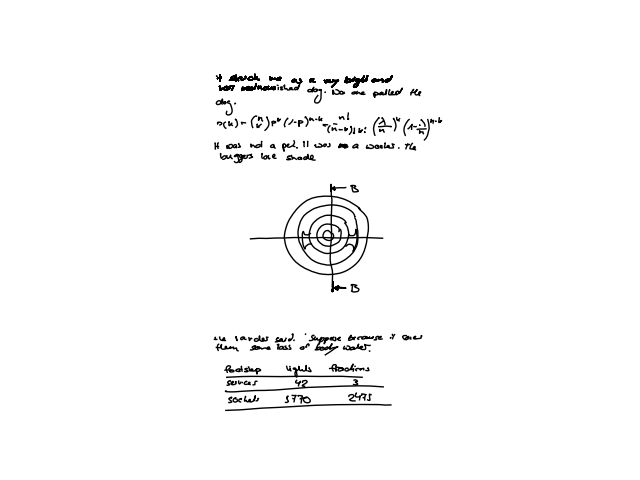 It struck me as a very bright and
well nourished dog. No one patted the
dog.
p(k) = (n k) p^k (1-p)^{n-k} = n!/((n-k)! k!) (λ/n)^k (1-λ/n)^{n-k}
It was not a pet. It was a worker. The
buggers love shade
B
B
He said. Suppose because it
them some loss of body water.
Footstep Lights Fractions
services 42 3
sockets 5770 2475